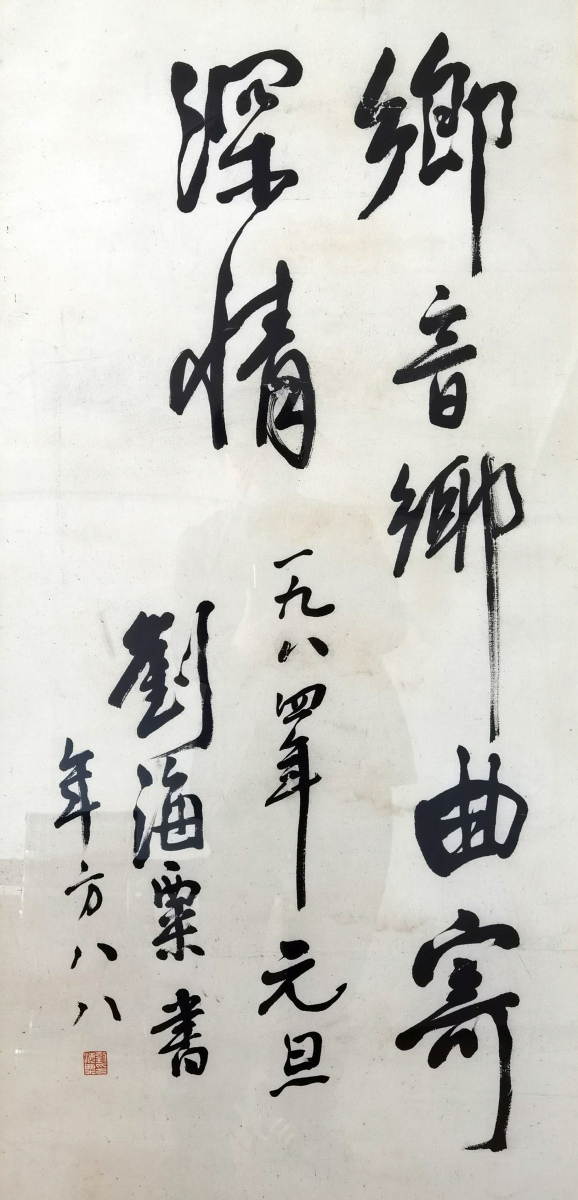 鄉音鄉曲寄
深情
一九八四年元旦
劉海粟書
年方八八